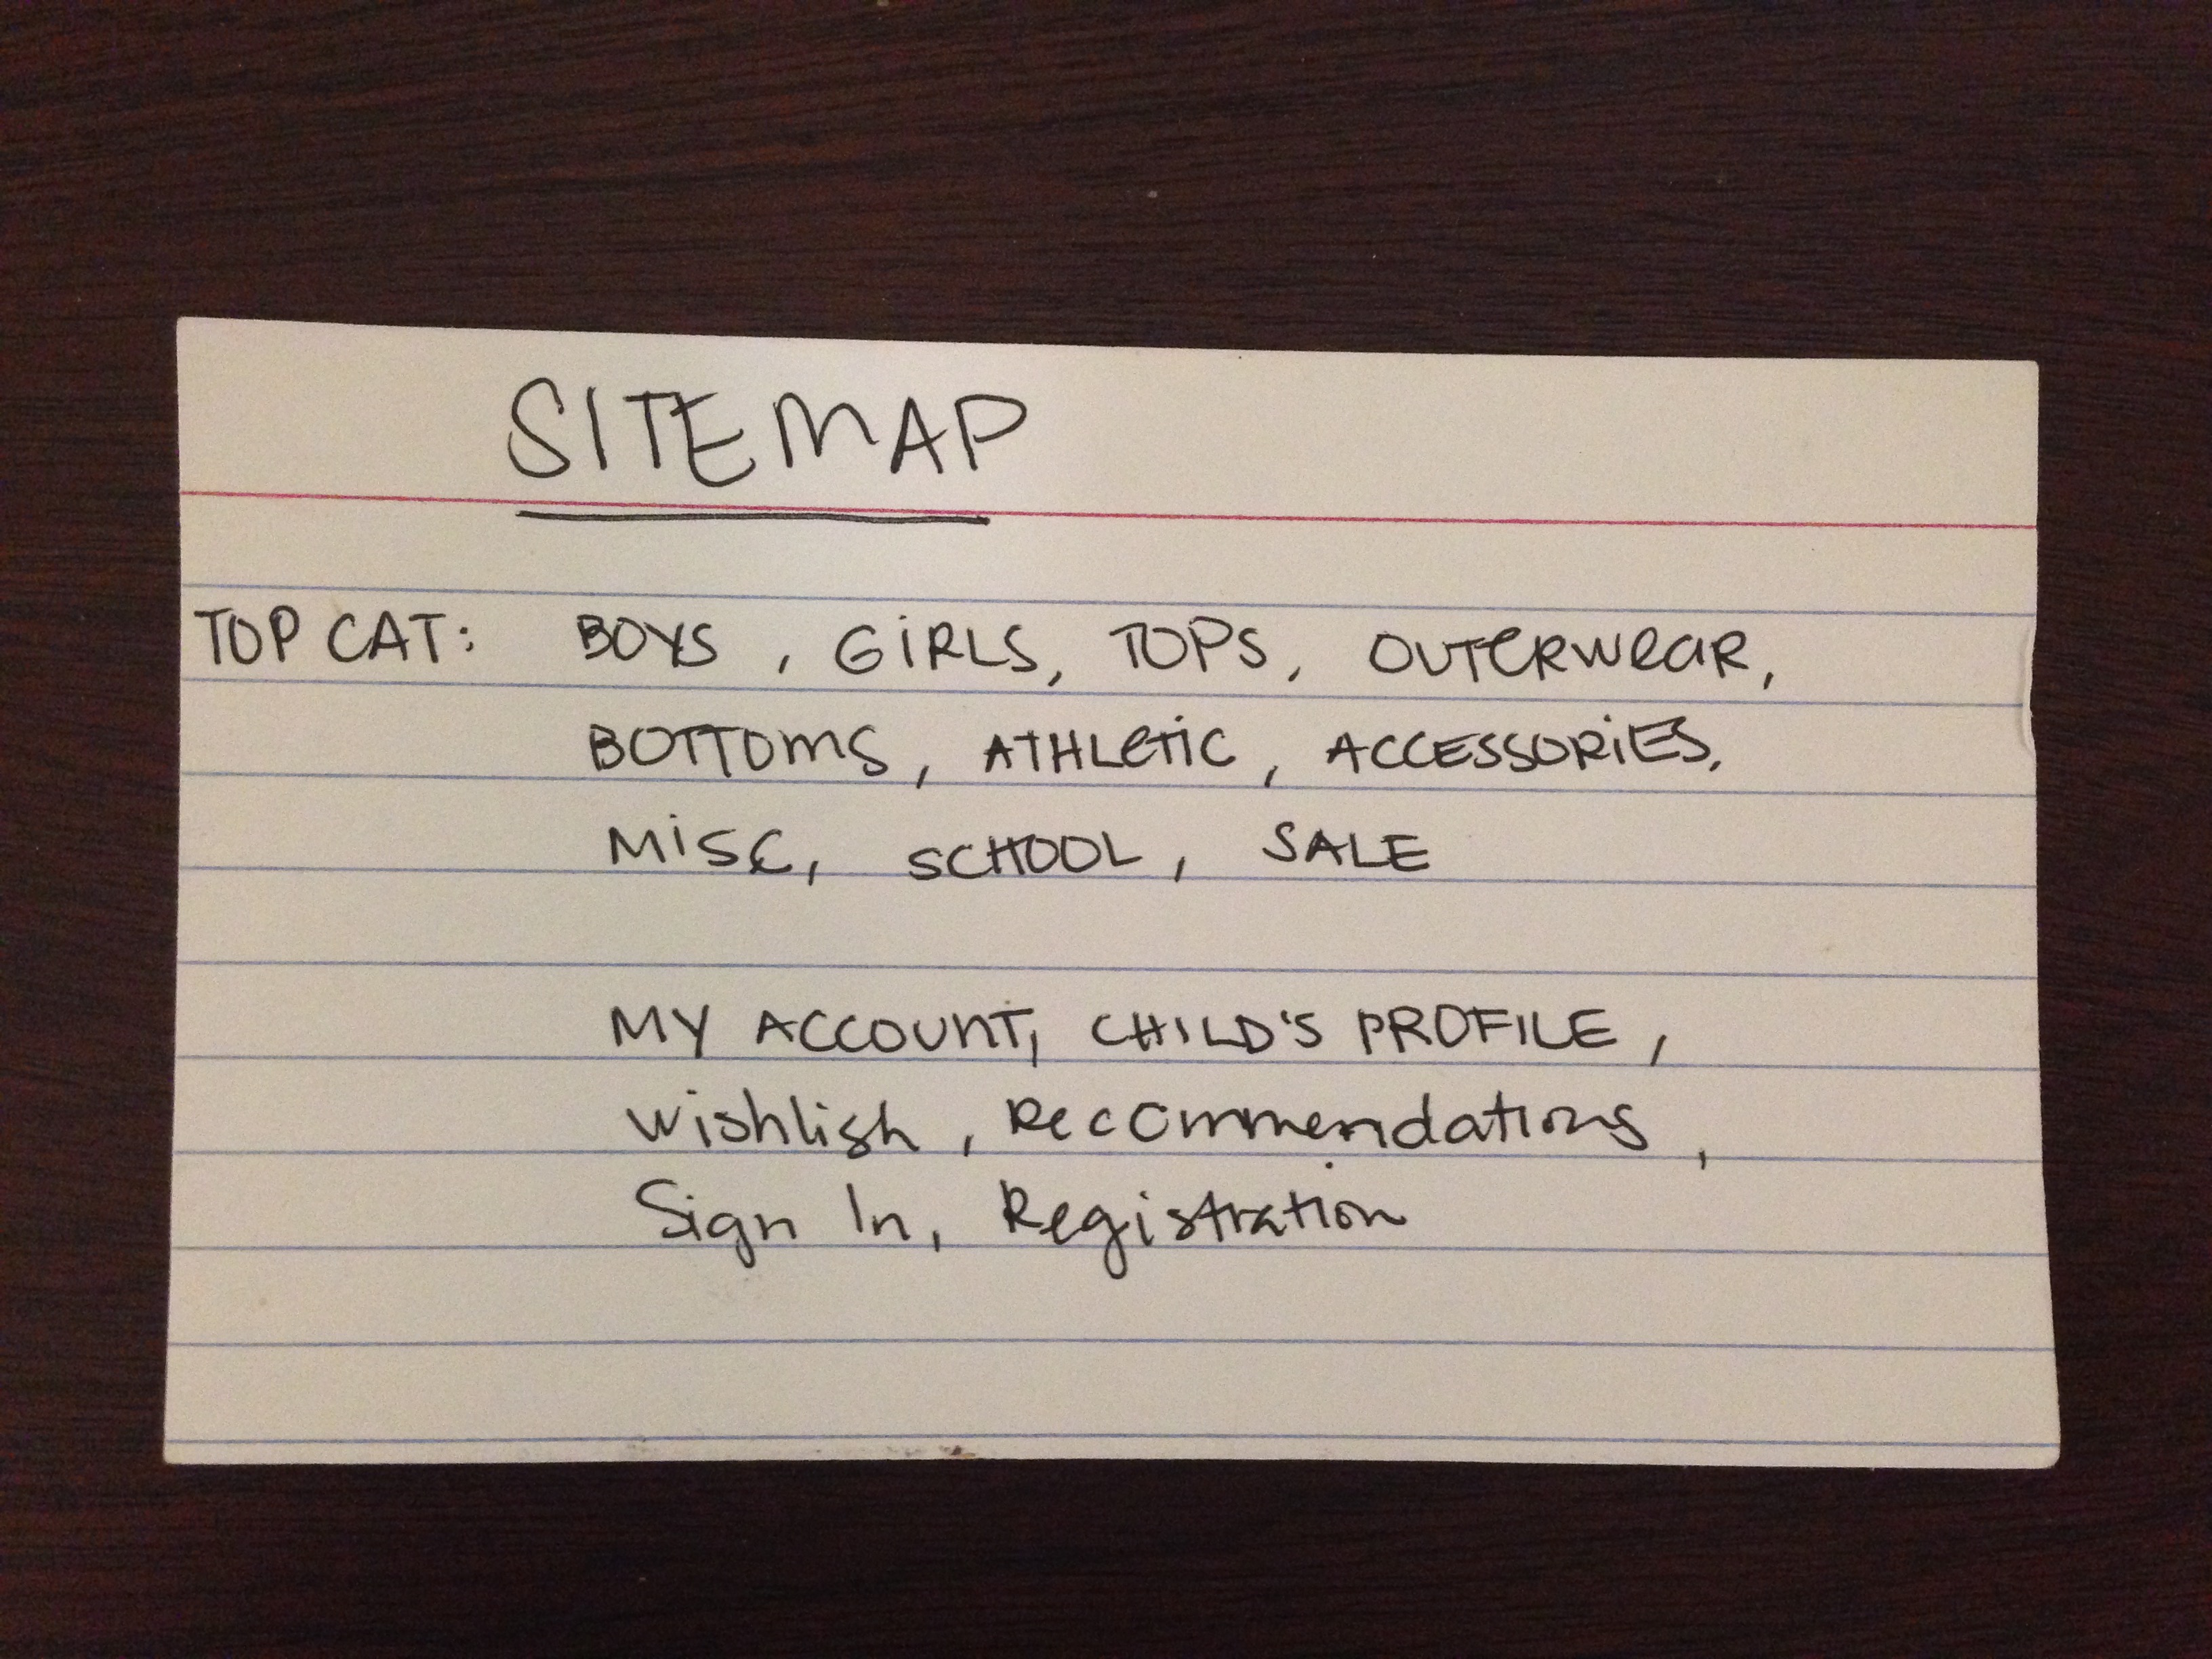 SITEMAP
TOP CAT: BOYS, GIRLS, TOPS, OUTERWEAR,
BOTTOMS, ATHLETIC, ACCESSORIES,
MISC, SCHOOL, SALE
MY ACCOUNT, CHILD'S PROFILE,
Wishlish, Recommendations,
Sign In, Registration